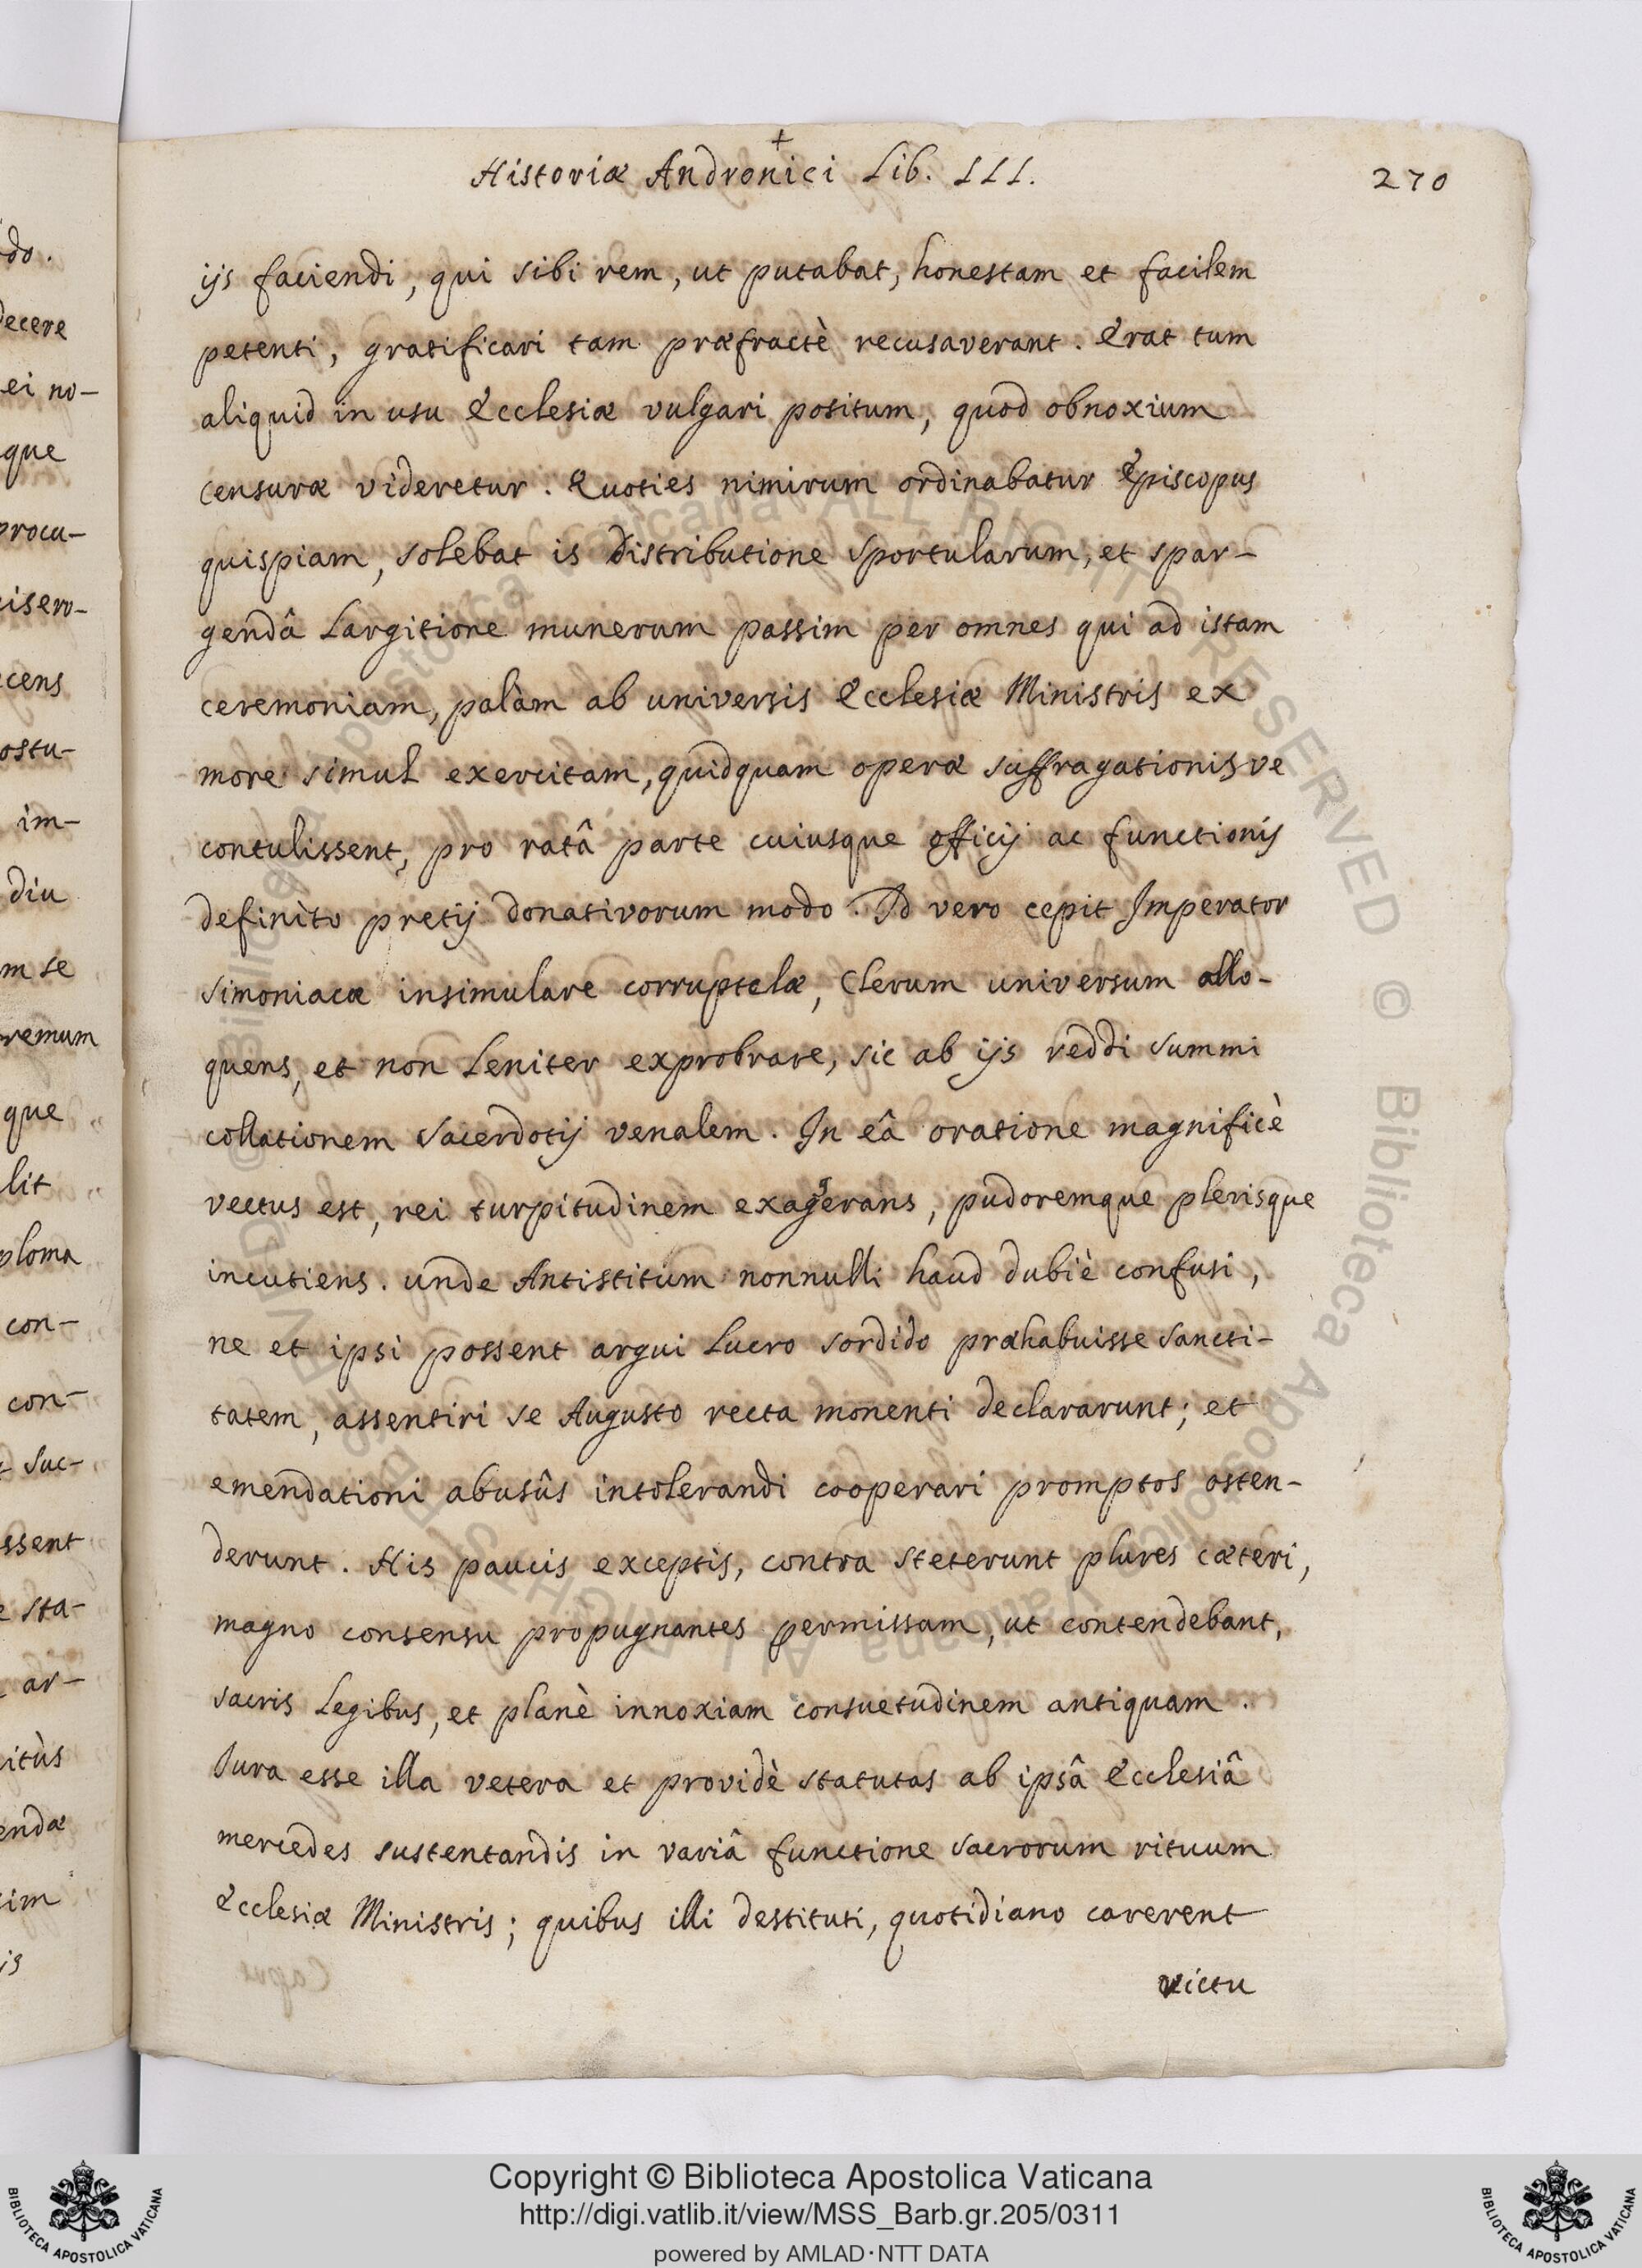 +
Historiæ Andronici Lib. III.
270
ijs faciendi, qui sibi rem, ut putabat, honestam et facilem
petenti, gratificari tam præfractè recusaverant. Erat tum
aliquid in usu Ecclesiæ vulgari positum, quod obnoxium
censuræ videretur. Quoties nimirum ordinabatur Episcopus
quispiam, solebat is distributione sportularum, et spar-
gendâ Largitione munerum passim per omnes qui ad istam
ceremoniam, palàm ab universis Ecclesiæ Ministris ex
more simul exercitam, quidquam operæ suffragationisve
contulissent, pro ratâ parte cuiusque officij ac functionis
definito pretij donativorum modo. Id vero cepit Imperator
simoniacæ insimulare corruptelæ, Clerum universum allo-
quens, et non Leniter exprobrare, sic ab ijs reddi summi
collationem Sacerdotij venalem. In eâ oratione magnificè
vectus est, rei turpitudinem exaggerans, pudoremque plerisque
incutiens. unde Antistitum nonnulli haud dubiè confusi,
ne et ipsi possent argui Lucro sordido præhabuisse sancti-
tatem, assentiri se Augusto recta monenti declararunt; et
emendationi abusûs intolerandi cooperari promptos osten-
derunt. His paucis exceptis, contra steterunt plures cæteri,
magno consensu propugnantes permissam, ut contendebant,
sacris Legibus, et planè innoxiam consuetudinem antiquam.
Iura esse illa vetera et providè statutas ab ipsâ Ecclesiâ
mercedes sustentandis in variâ functione sacrorum rituum
Ecclesiæ Ministris; quibus illi destituti, quotidiano carerent
victu
do.
decere
ei no-
que
procu-
cens
ostu-
im-
diu
m se
remum
que
lit
ploma
con-
con-
suc-
ssent
sta-
ar-
itùs
endæ
im
is
Copyright © Biblioteca Apostolica Vaticana
http://digi.vatlib.it/view/MSS_Barb.gr.205/0311
powered by AMLAD·NTT DATA
BIBLIOTECA APOSTOLICA VATICANA
BIBLIOTECA APOSTOLICA VATICANA